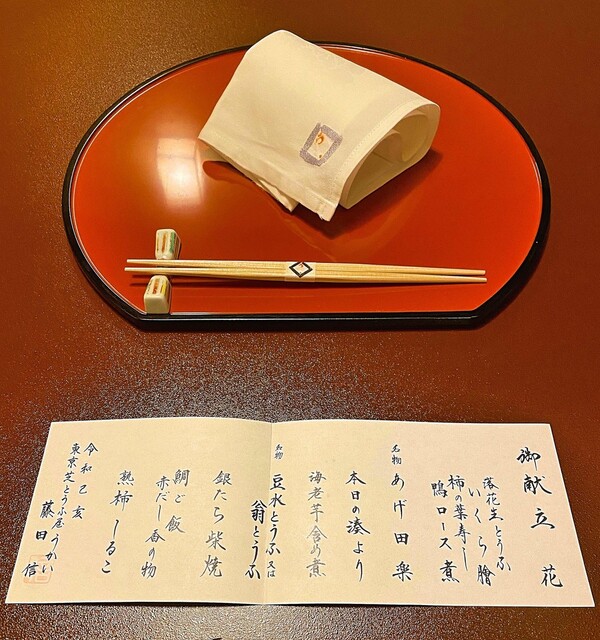 御献立 花
落花生とうふ
いくら膾
柿の葉寿し
鴨ロース煮
名物 あげ田楽
本日の湊より
海老芋含め煮
名物 豆水とうふ 又は
翁とうふ
銀だら柴焼
鯛ご飯
赤だし 香の物
熟柿しるこ
令和己亥
東京芝とうふ屋うかい
藤田信